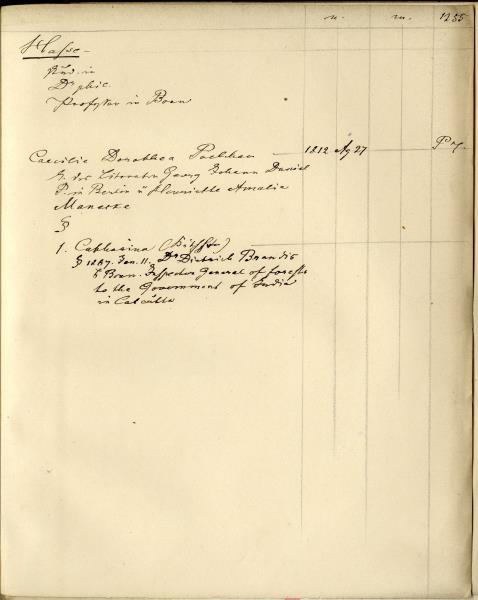 n. m. 1255
Hasse
in
Dr phil.
Professor in Bonn
Caecilie Dorothea Poelchau 1812 Ag 27
T. des Literaten Georg Johann Daniel
P. in Berlin u Henriette Amalia
Manecke
§
1. Catharina
§ 1867. Jan. 11. Dr Dietrich Brandis
Bonn. Inspector General of forests
to the Government of India
in Calcutta